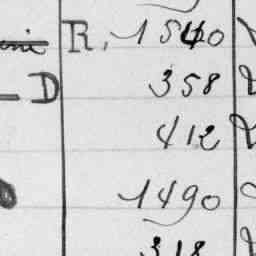 R, 1540
D 358
412
1490
318